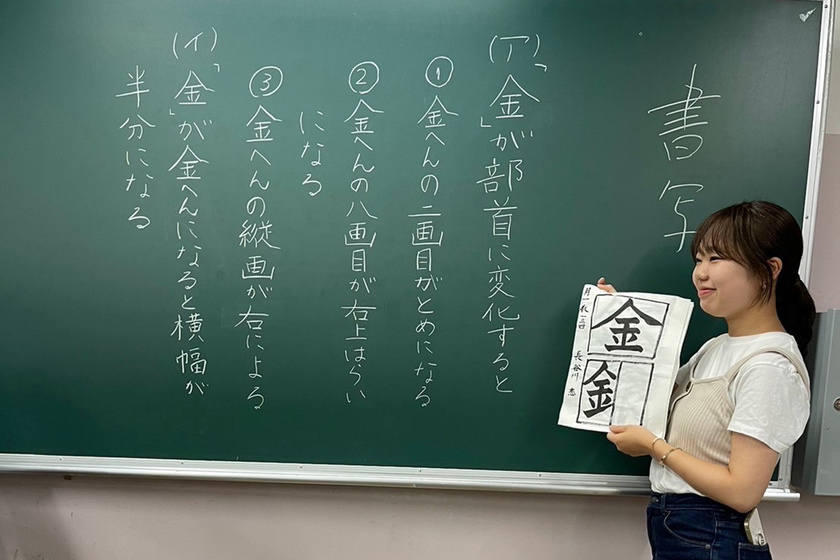 書写
(ア)「金」が部首に変化すると
①金へんの二画目がとめになる
②金へんの八画目が右上はらい
になる
③金へんの縦画が右による
(イ)「金」が金へんになると横幅が
半分になる
金
金
長谷川